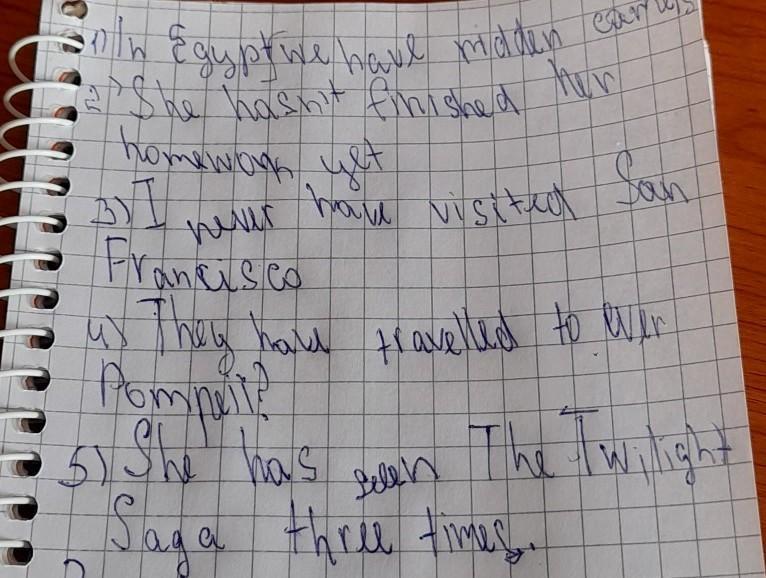 1) In Egypt we have ridden camels
2) She hasn't finished her
homework yet
3) I never have visited San
Francisco
4) They have travelled to ever
Pompeii?
5) She has seen The Twilight
Saga three times.